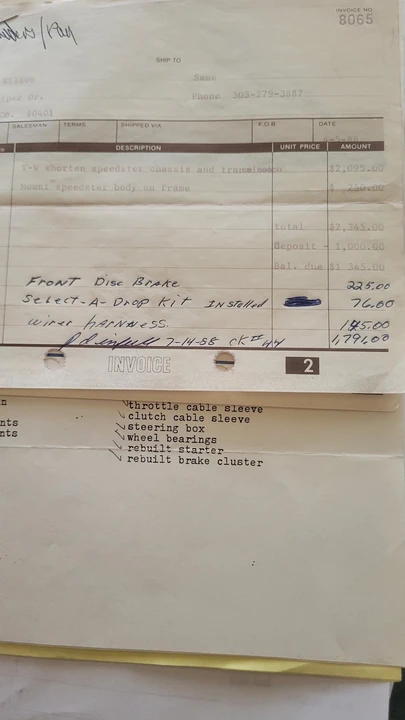 INVOICE NO.
8065
SHIP TO
Same
Phone 303-279-3887
80401
SALESMAN TERMS SHIPPED VIA F.O.B. DATE
DESCRIPTION UNIT PRICE AMOUNT
V-W shorten speedster chassis and $2,095.00
Mount speedster body on frame $ 250.00
total $2,345.00
deposit - 1,000.00
Bal. due $1 345.00
Front Disc Brake 225.00
Select-A-Drop Kit Installed 76.00
wirer harness. 145.00
7-14-88 CK# 1,791.00
INVOICE 2
throttle cable sleeve
clutch cable sleeve
nts steering box
nts wheel bearings
rebuilt starter
rebuilt brake cluster